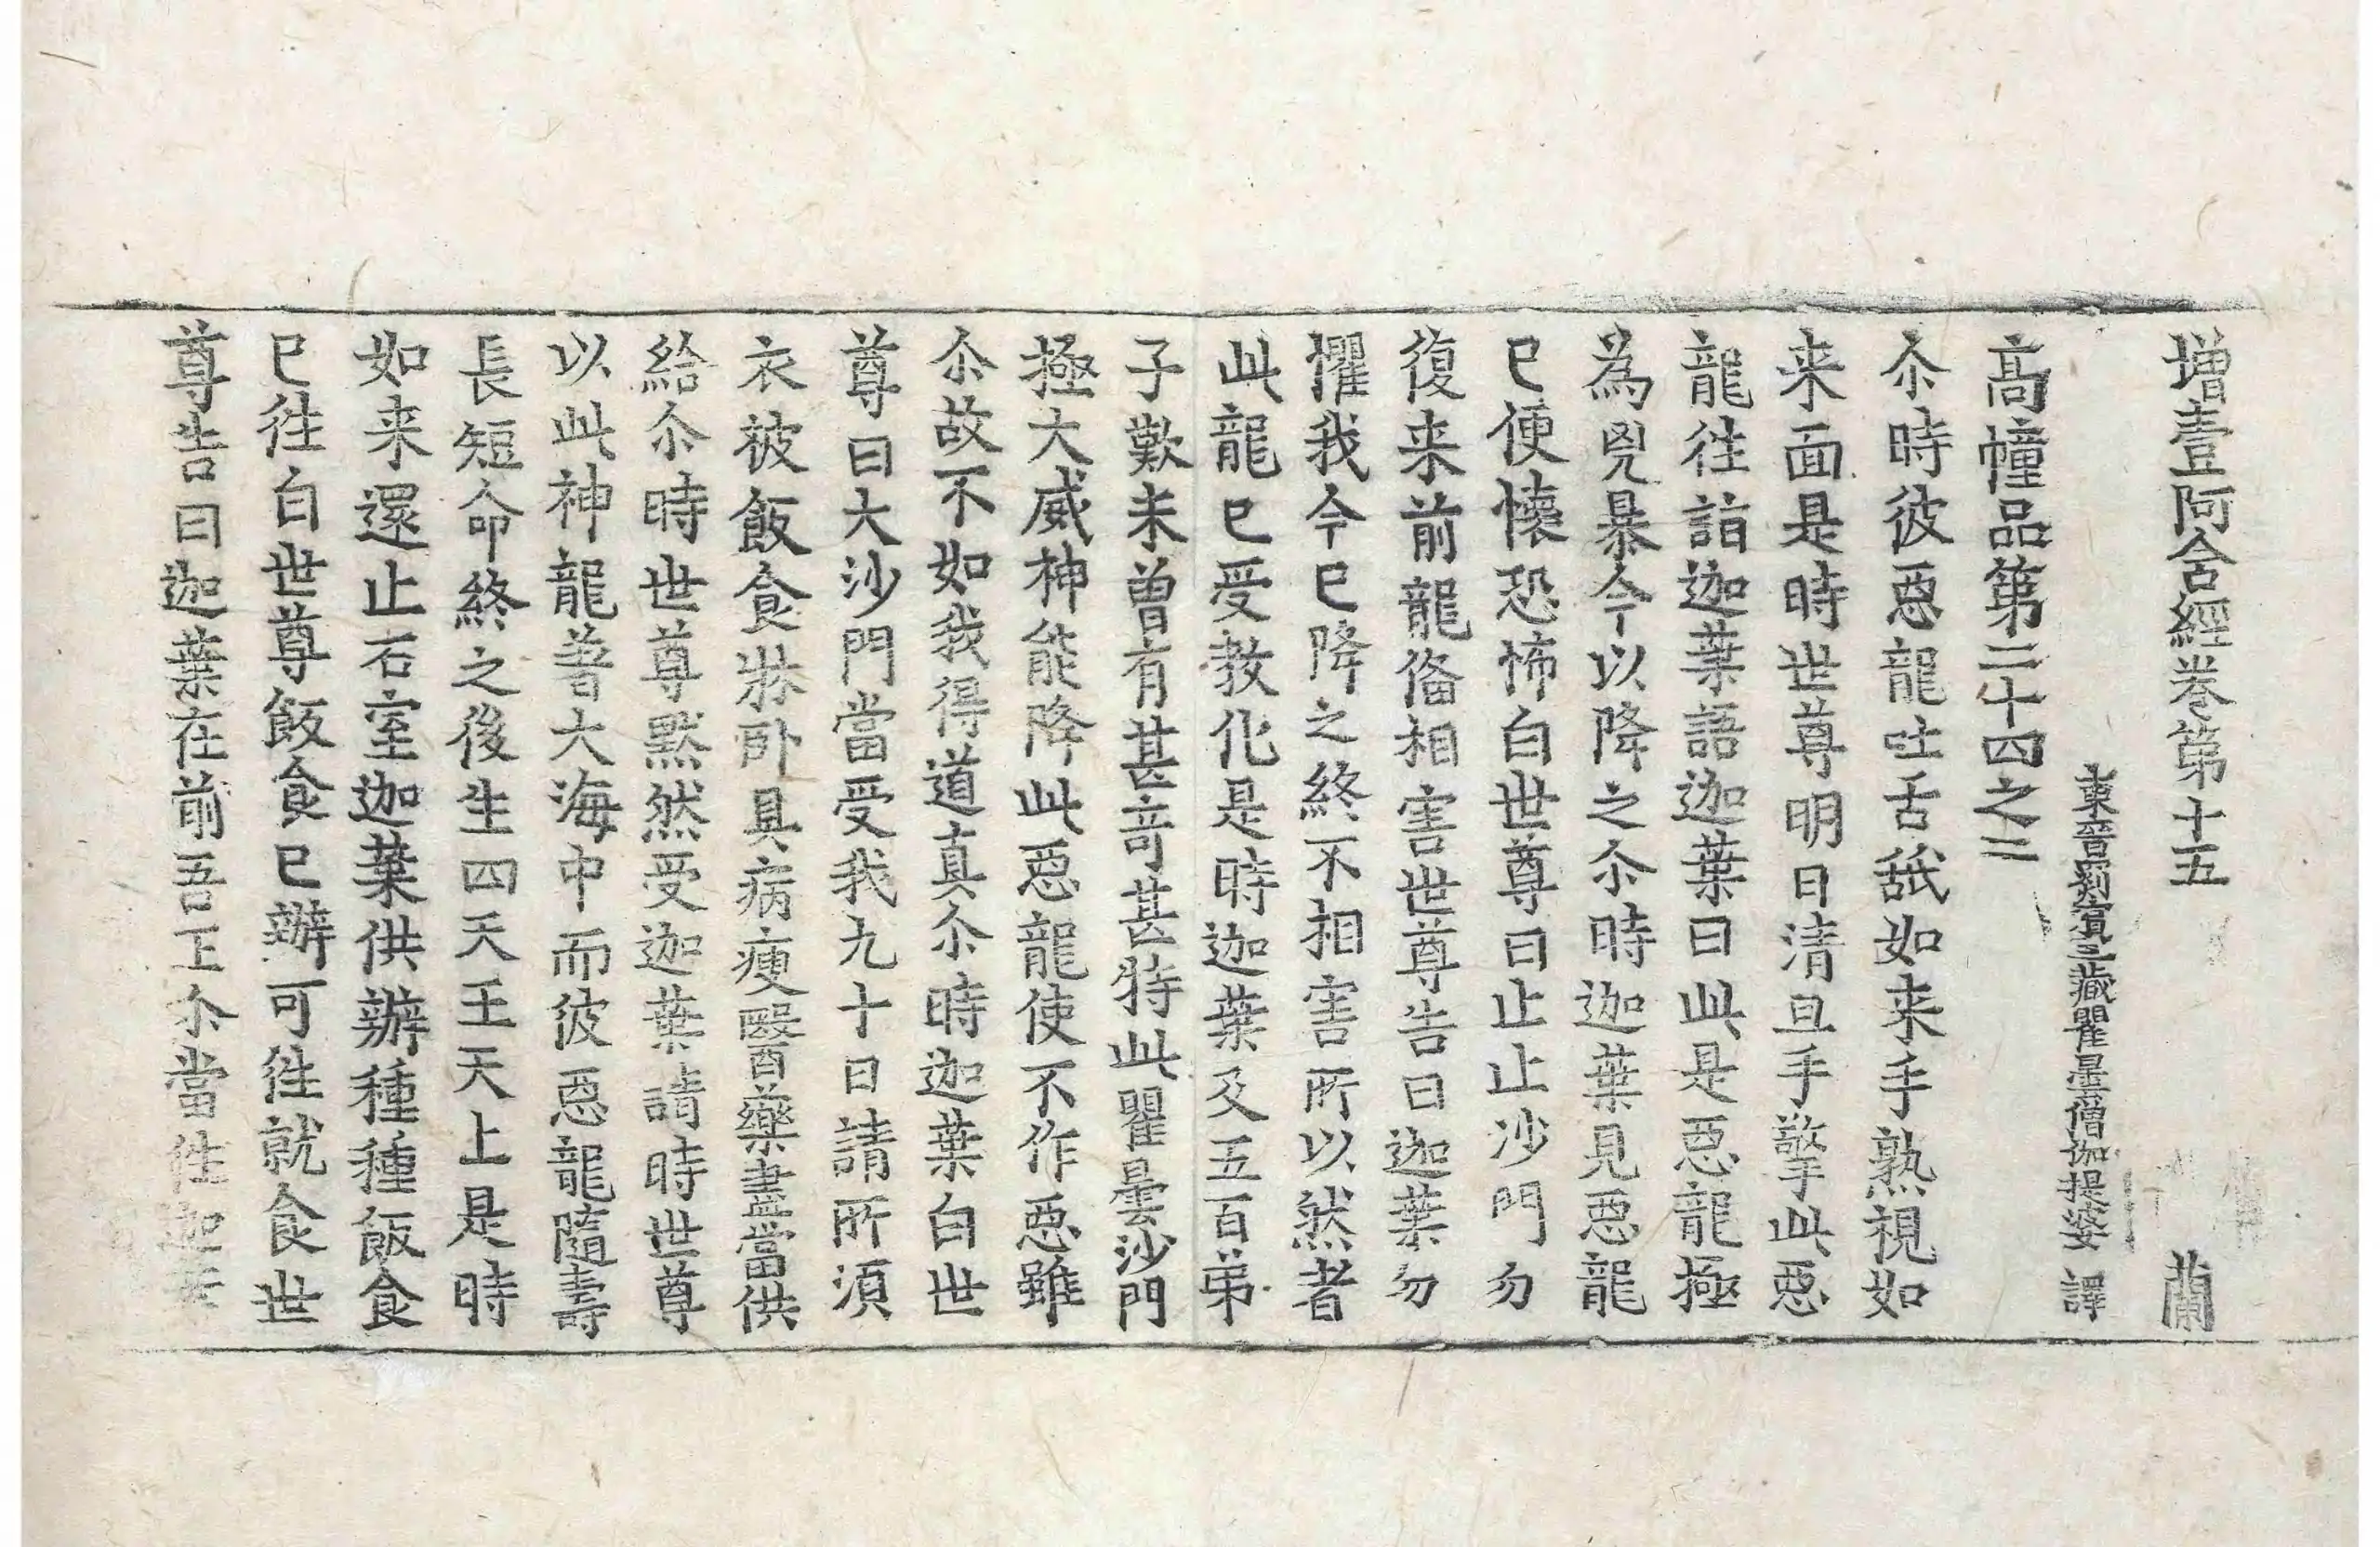 增壹阿含經卷第十五 蘭
東晉罽賓三藏瞿曇僧伽提婆 譯
高幢品第二十四之二
尒時彼惡龍吐舌舐如来手熟視如
来面是時世尊明日清旦手擎此惡
龍往詣迦葉語迦葉曰此是惡龍極
爲兇暴今以降之尒時迦葉見惡龍
已便懷恐怖白世尊曰止止沙門勿
復来前龍俻相害世尊告曰迦葉勿
懼我今已降之終不相害所以然者
此龍已受教化是時迦葉及五百弟
子歎未曽有甚竒甚特此瞿曇沙門
極大威神能降此惡龍使不作惡雖
尒故不如我得道真尒時迦葉白世
尊曰大沙門當受我九十日請所須
衣被飯食牀卧具病瘦醫藥盡當供
給尒時世尊黙然受迦葉請時世尊
以此神龍着大海中而彼惡龍隨壽
長短命終之後生四天王天上是時
如来還止石室迦葉供辦種種飯食
已往白世尊飯食已辦可往就食世
尊告曰迦葉在前吾正尒當往迦葉